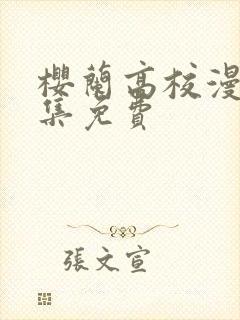 櫻蘭高校漫
集免費
張文宣